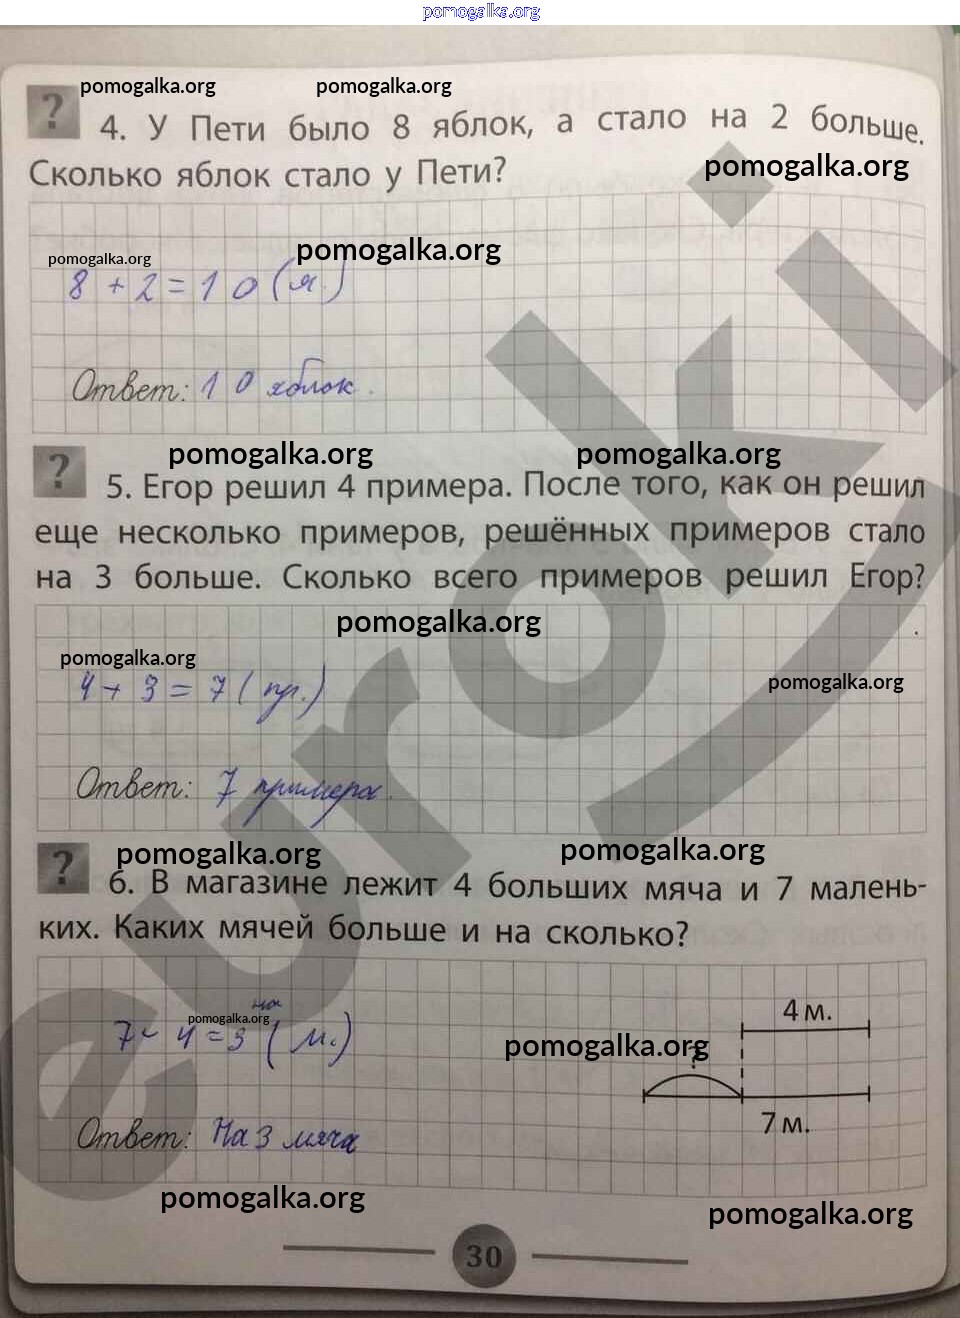 pomogalka.org
pomogalka.org pomogalka.org
? 4. У Пети было 8 яблок, а стало на 2 больше.
pomogalka.org
Сколько яблок стало у Пети?
pomogalka.org pomogalka.org
8 + 2 = 10 (я.)
Ответ: 10 яблок.
pomogalka.org pomogalka.org
? 5. Егор решил 4 примера. После того, как он решил
еще несколько примеров, решённых примеров стало
на 3 больше. Сколько всего примеров решил Егор?
pomogalka.org
pomogalka.org
4 + 3 = 7 (пр.)
pomogalka.org
Ответ: 7 примера.
pomogalka.org pomogalka.org
? 6. В магазине лежит 4 больших мяча и 7 малень-
ких. Каких мячей больше и на сколько?
на
4 м.
pomogalka.org
7 - 4 = 3 (м.)
pomogalka.org
?
7 м.
Ответ: На 3 мяча
pomogalka.org
pomogalka.org
30
euroki